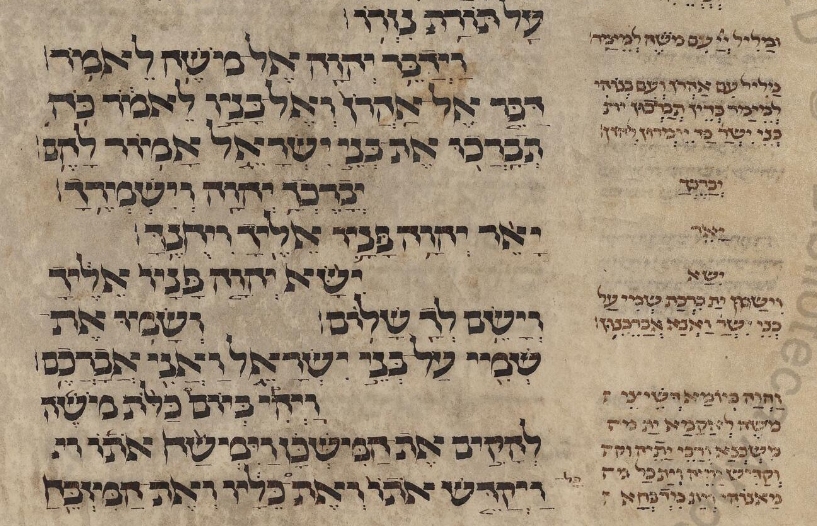 על תורת נזרו
וידבר יהוה אל משה לאמר
דבר אל אהרן ואל בניו לאמר כה
תברכו את בני ישראל אמור להם
יברכך יהוה וישמרך
יאר יהוה פניו אליך ויחנך
ישא יהוה פניו אליך
וישם לך שלום ושמו את
שמי על בני ישראל ואני אברכם
ויהי ביום כלת משה
להקים את המשכן וימשח אתו וי
ויקדש אתו ואת כליו ואת המזבח
ומליל יי עם משה למימר
מליל עם אהרן ועם בנוהי
למימר כדין תברכון ית
בני ישר כד יימרון להון
יברכך
יאר
ישא
וישוון ית ברכת שמי על
בני ישר ואנא אברכנון
והוה ביומא דשיצי
משה לאקמא ית
משכנא ורבי יתיה
וקדיש יתיה וית כל
מאנוהי וית מדבחא
כל